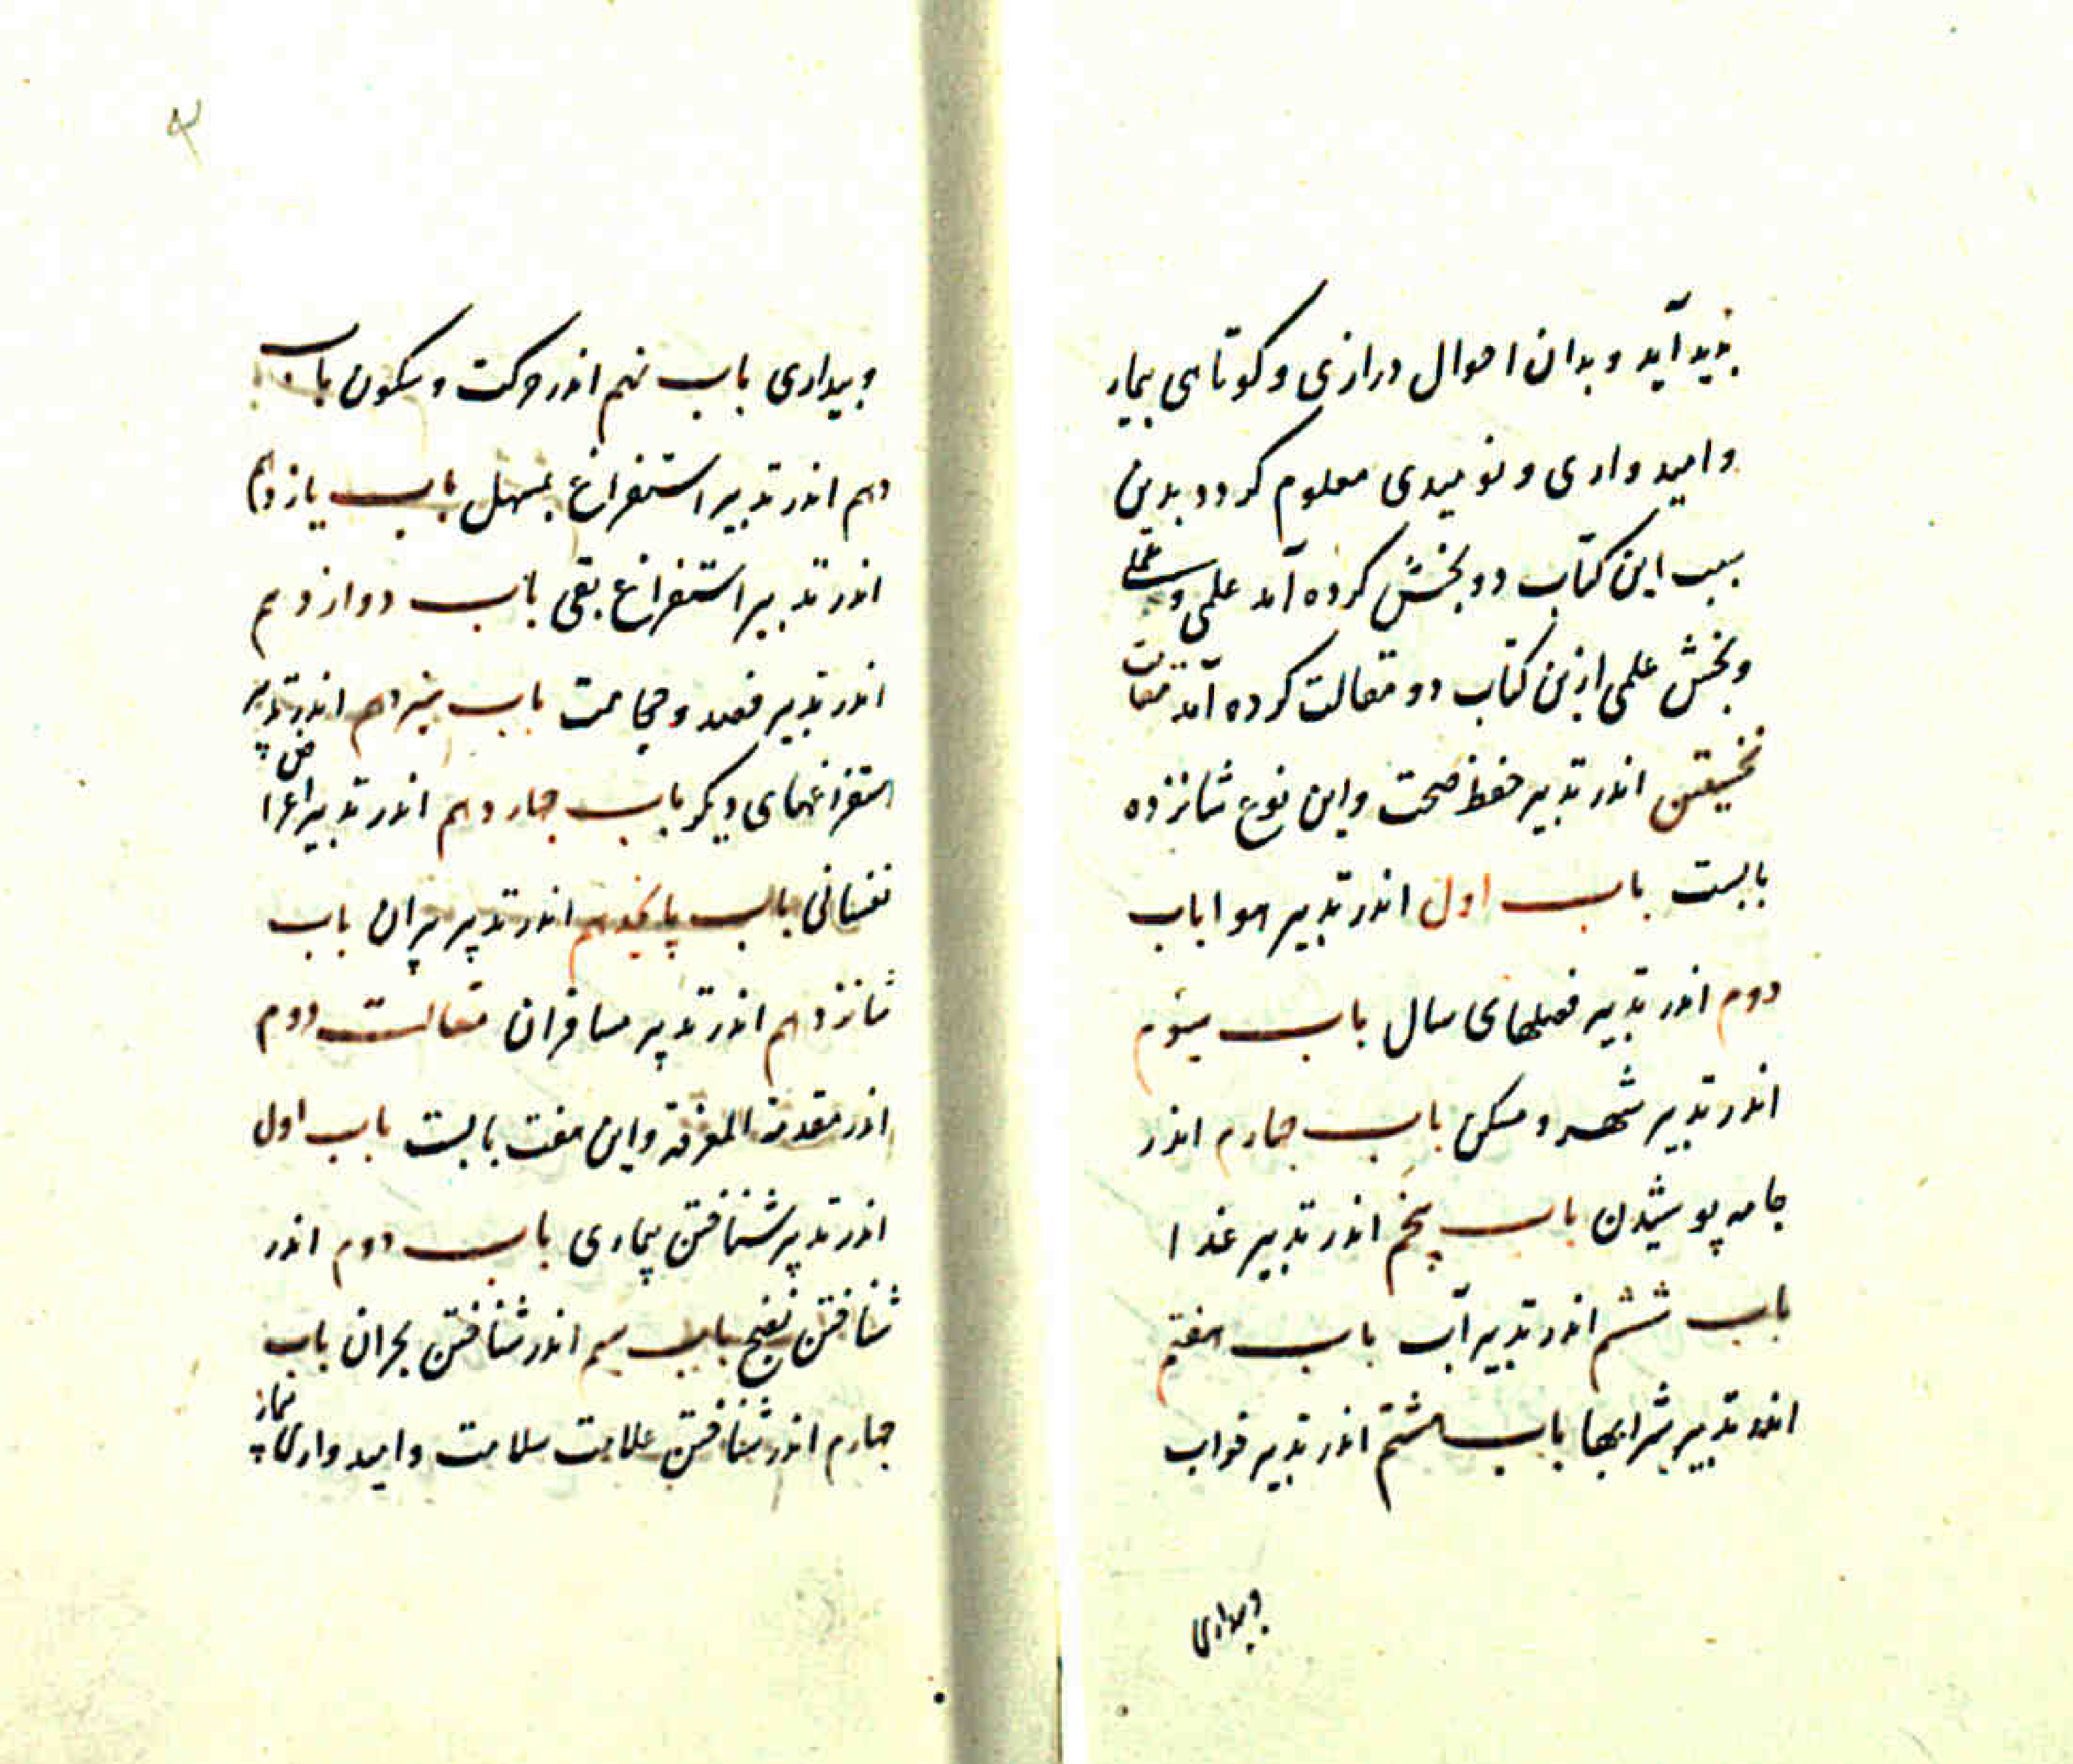 پدید آید و بدان احوال درازی و کوتاهی بیمار
و امیدواری و نومیدی معلوم کردد بدین
سبب این کتاب دو بخش کرده آمد علمی و عملی
و بخش علمی ازین کتاب دو مقالت کرده آمد مقالت
نخستین اندر تدبیر حفظ صحت و این نوع شانزده
بابست باب اول اندر تدبیر هوا باب
دوم اندر تدبیر فصلهای سال باب سیوم
اندر تدبیر شهر و مسکن باب چهارم اندر
جامه پوشیدن باب پنجم اندر تدبیر غذا
باب ششم اندر تدبیر آب باب هفتم
اندر تدبیر شرابها باب هشتم اندر تدبیر خواب
و بیداری
۳
و بیداری باب نهم اندر حرکت و سکون باب
دهم اندر تدبیر استفراغ بمسهل باب یازدهم
اندر تدبیر استفراغ بقی باب دوازدهم
اندر تدبیر فصد و حجامت باب سیزدهم اندر تدبیر
استفراغهای دیکر باب چهاردهم اندر تدبیر اعراض
نفسانی باب پانزدهم اندر تدبیر پیران باب
شانزدهم اندر تدبیر مسافران مقالت دوم
اندر مقدمة المعرفة و این هفت بابست باب اول
اندر تدبیر شناختن بیماری باب دوم اندر
شناختن نضج باب سیم اندر شناختن بحران باب
چهارم اندر شناختن علامت سلامت و امیدواری